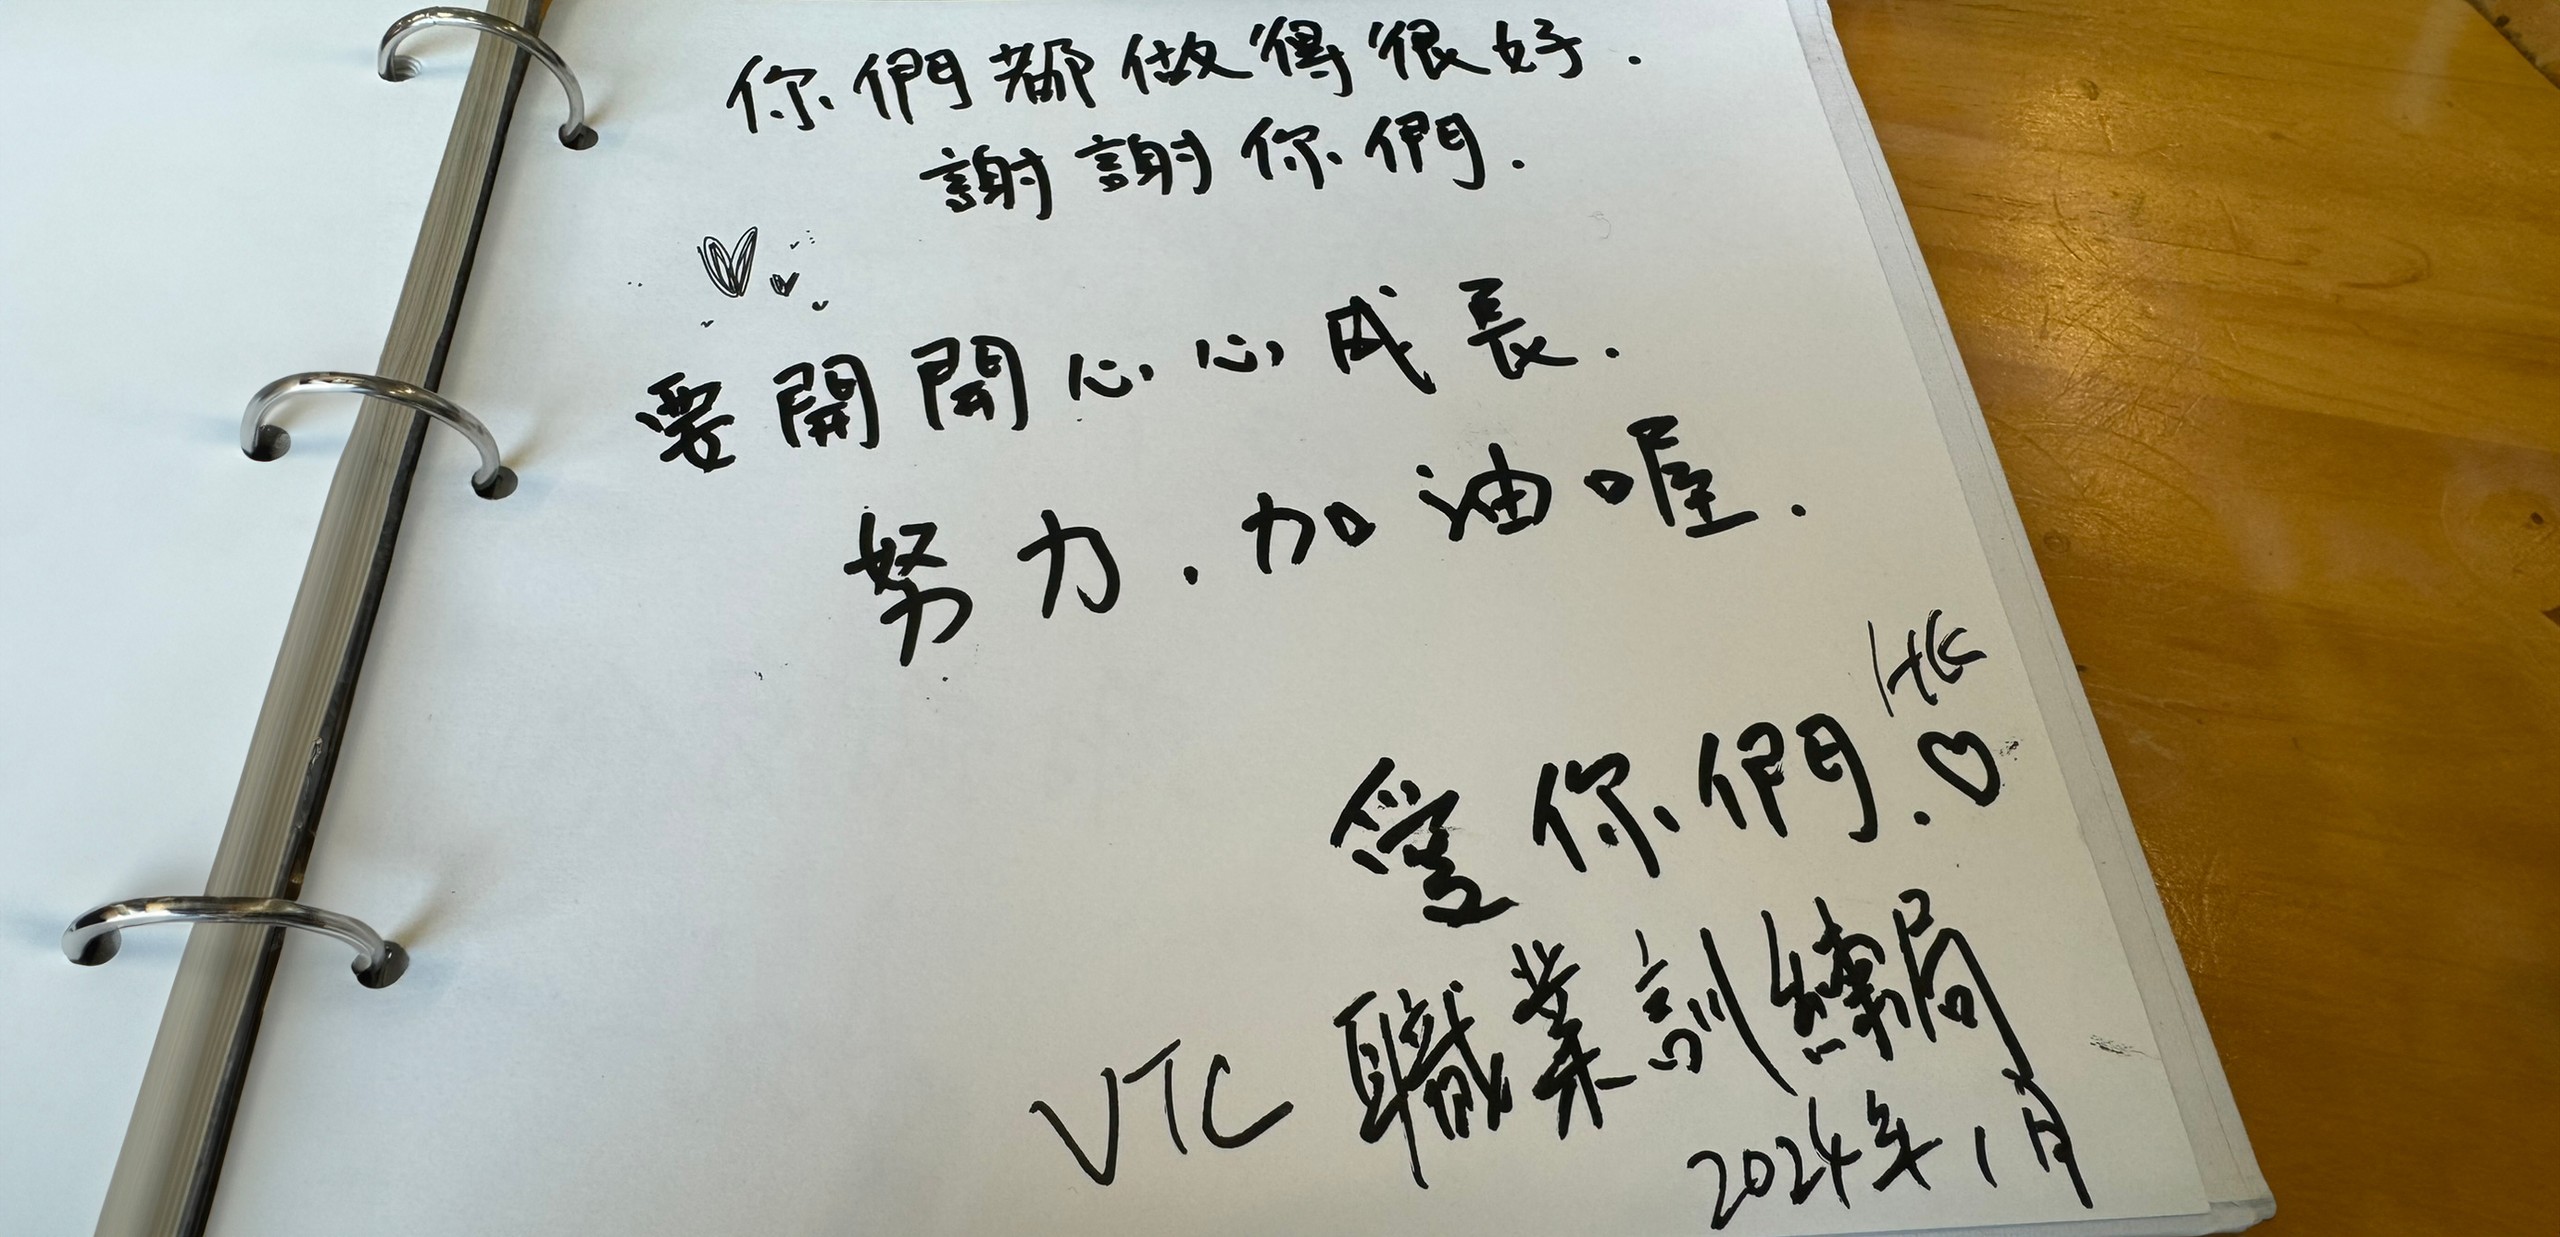 你們都做得很好.
謝謝你們.
要開開心心成長.
努力.加油喔.
HK
愛你們.♡
VTC 職業訓練局
2024年1月